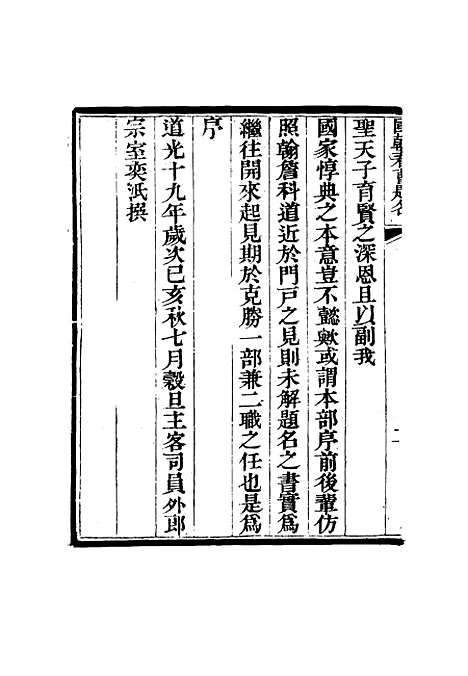 國朝春曹題名
二
聖天子育賢之深恩且以副我
國家惇典之本意豈不懿歟或謂本部序前後輩仿
照翰詹科道近於門戶之見則未解題名之書實爲
繼往開來起見期於克勝一部兼二職之任也是爲
序
道光十九年歲次己亥秋七月穀旦主客司員外郎
宗室奕泜撰